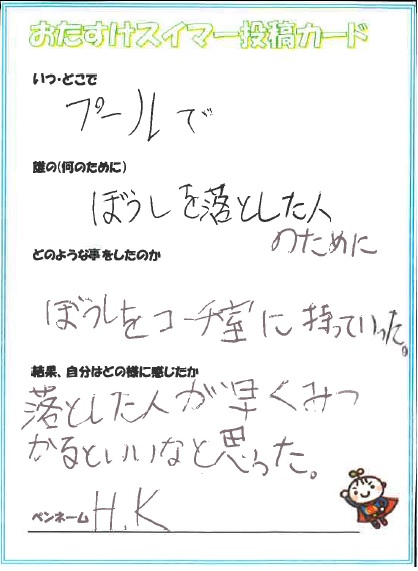 おたすけスイマー投稿カード
いつ・どこで
プールで
誰の(何のために)
ぼうしを落とした人
のために
どのような事をしたのか
ぼうしをコーチ室に持っていった。
結果、自分はどの様に感じたか
落とした人が早くみつ
かるといいなと思った。
ペンネーム H.K